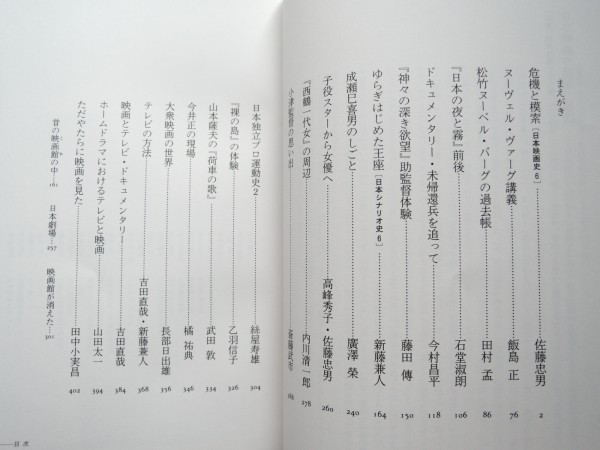 まえがき
危機と模索[日本映画史6] 佐藤忠男 2
ヌーヴェル・ヴァーグ講義 飯島 正 76
松竹ヌーベル・バーグの過去帳 田村 孟 86
『日本の夜と霧』前後 石堂淑朗 106
ドキュメンタリー・未帰還兵を追って 今村昌平 118
『神々の深き欲望』助監督体験 藤田 傳 150
ゆらぎはじめた王座[日本シナリオ史6] 新藤兼人 164
成瀬巳喜男のしごと 廣澤 榮 240
子役スターから女優へ 高峰秀子・佐藤忠男 260
『西鶴一代女』の周辺 内川清一郎 278
小津監督の思い出
日本独立プロ運動史2 絲屋寿雄 304
『裸の島』の体験 乙羽信子 326
山本薩夫の『荷車の歌』 武田 敦 334
今井正の現場 橘 祐典 346
大衆映画の世界 長部日出雄 356
テレビの方法 吉田直哉・新藤兼人 368
映画とテレビ・ドキュメンタリー 吉田直哉 384
ホームドラマにおけるテレビと映画 山田太一 394
ただやたらに映画を見た 田中小実昌 402
昔の映画館の中 161 日本劇場 257 映画館が消えた 301
目次